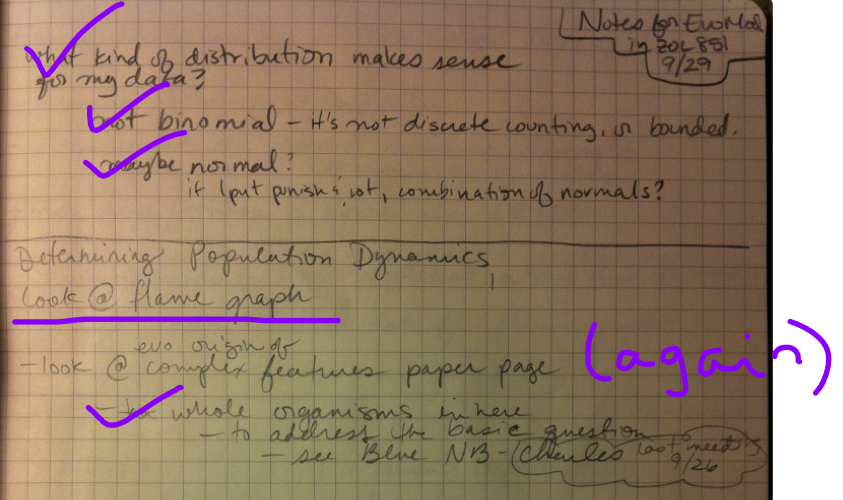 Notes for EvoMod
in ZOL 851
9/29
what kind of distribution makes sense
for my data?
not binomial - it's not discrete counting, or bounded.
maybe normal?
if I put punish &  rot, combination of normals?
Determining Population Dynamics
look @ flame graph
evo origin of
- look @ complex features paper page (again)
- whole organisms in here
- to address the basic question
- see Blue NB - Charles last meeting
9/26